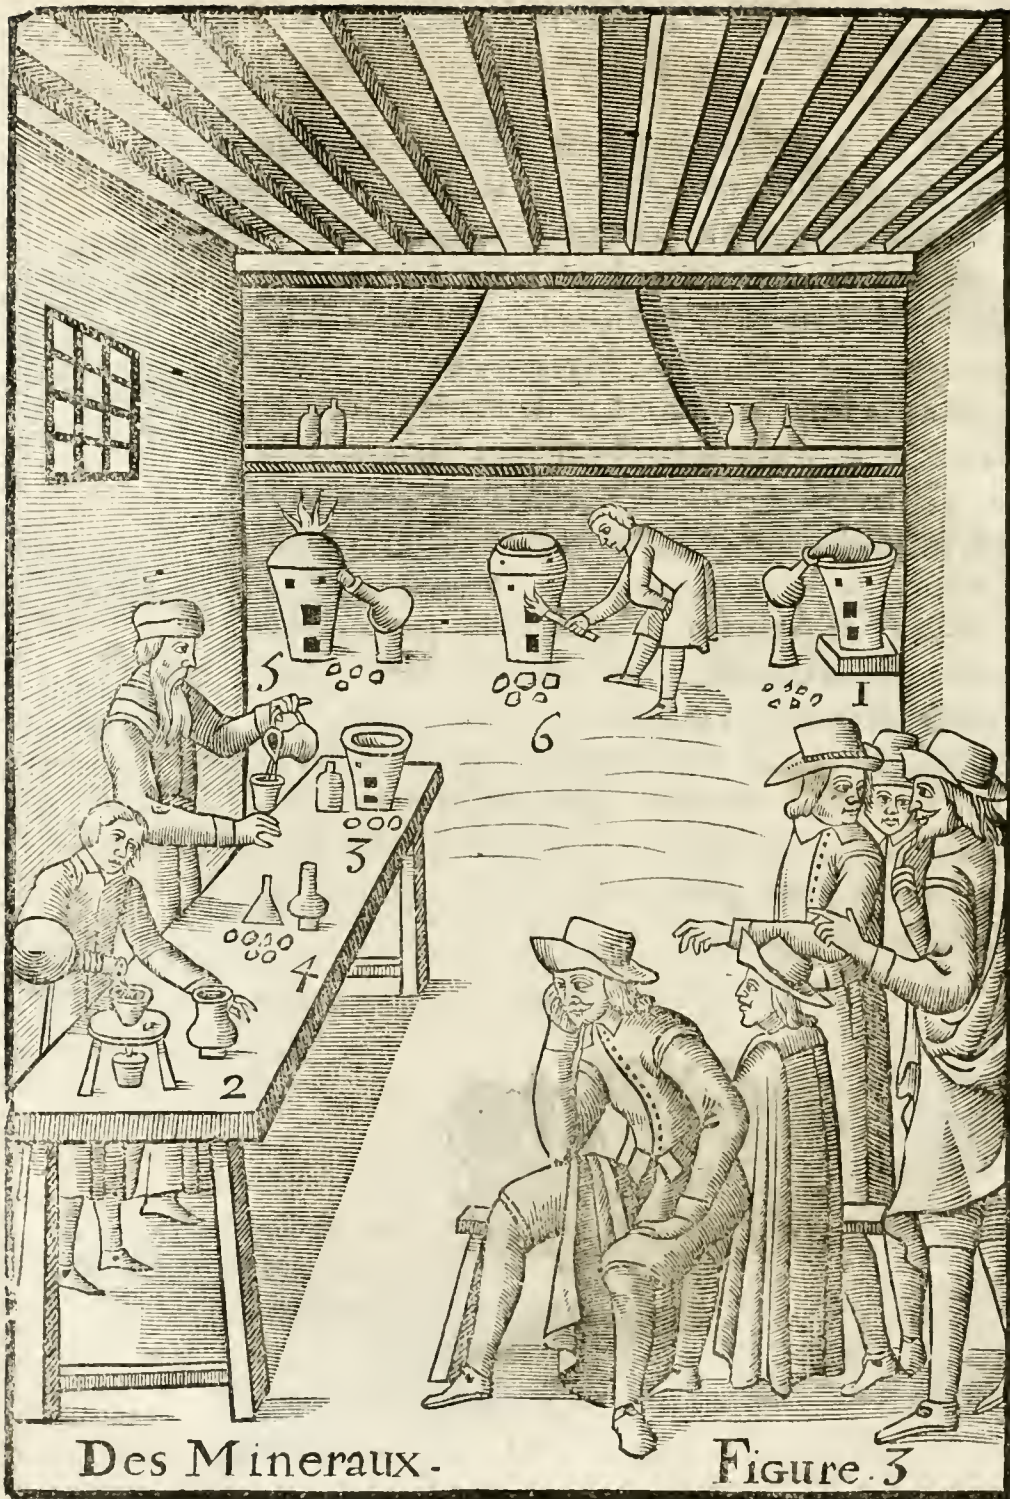 5
6
1
3
4
2
Des Mineraux.
Figure. 3